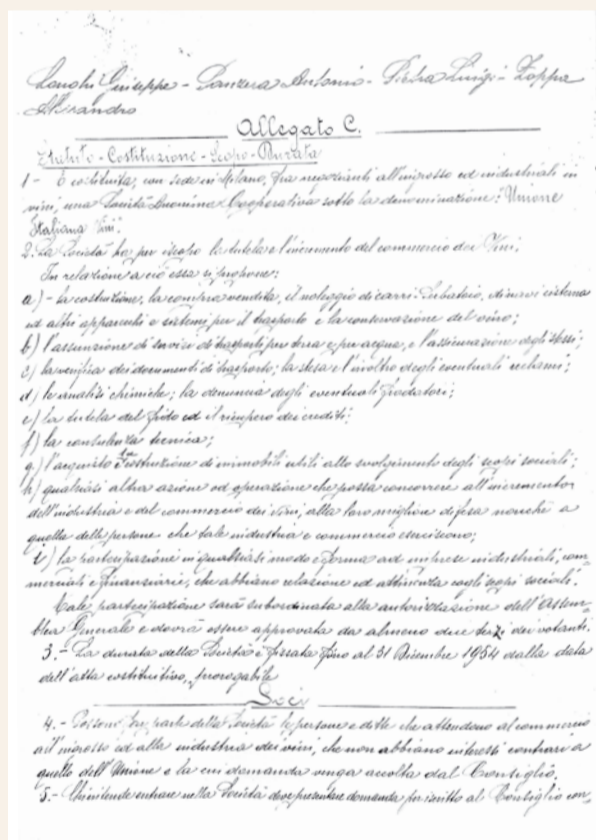 Longhi Giuseppe - Panzera Antonio - Pietra Luigi - Zoppa
Alessandro
Allegato C.
Statuto - Costituzione - Scopo - Durata
1 - È costituita, con sede in Milano, fra negozianti all'ingrosso ed industriali in
vini, una Società Anonima Cooperativa sotto la denominazione: "Unione
Italiana Vini".
2. La Società ha per iscopo la tutela e l'incremento del commercio dei Vini.
In relazione a ciò essa si propone:
a) - la costruzione, la compra vendita, il noleggio di carri-serbatoio, di navi cisterna
ed altri apparenti e sistemi per il trasporto e la conservazione del vino;
b) l'assunzione di servizi di trasporti per terra e per acqua, e l'assicurazione degli stessi;
c) la verifica dei documenti di trasporto; la stesa e l'inoltro degli eventuali reclami;
d) le analisi chimiche; la denuncia degli eventuali frodatori;
e) la tutela del fido ed il ricupero dei crediti;
f) la consulenza tecnica;
g) l'acquisto costruzione di immobili utili allo svolgimento degli scopi sociali;
h) qualsiasi altra azione od operazione che possa concorrere all'incremento
dell'industria e del commercio dei vini, alla loro migliore difesa nonchè a
quella delle persone che tale industria e commercio esercitano;
i) la partecipazioni in qualsiasi modo e forma ad imprese industriali, com-
merciali e finanziarie, che abbiano relazione ed attinenza cogli scopi sociali.
Tale partecipazione sarà subordinata alla autorizzazione dell'Assem-
blea Generale e dovrà essere approvata da almeno due terzi dei votanti.
3. - La durata della Società è fissata fino al 31 Dicembre 1954 dalla data
dell'atto costitutivo, prorogabile
Soci
4. - Possono far parte della Società le persone e ditte che attendono al commercio
all'ingrosso ed alla industria dei vini, che non abbiano interessi contrari a
quello dell'Unione e la cui domanda venga accolta dal Consiglio.
5. - Chi intende entrare nella Società deve presentare domanda per iscritto al Consiglio con-